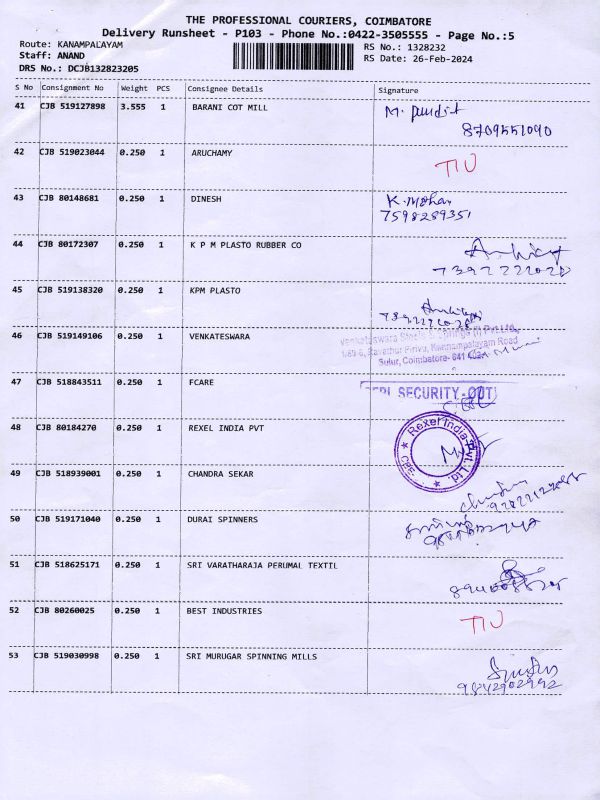 THE PROFESSIONAL COURIERS, COIMBATORE
Delivery Runsheet - P103 - Phone No.:0422-3505555 - Page No.:5
Route: KANAMPALAYAM
RS No.: 1328232
Staff: ANAND
RS Date: 26-Feb-2024
DRS No.: DCJB132823205
S No Consignment No Weight PCS Consignee Details Signature
41 CJB 519127898 3.555 1 BARANI COT MILL M. Pandit
8709551090
42 CJB 519023044 0.250 1 ARUCHAMY TIU
43 CJB 80148681 0.250 1 DINESH K. Mohan
7598289351
44 CJB 80172307 0.250 1 K P M PLASTO RUBBER CO
45 CJB 519138320 0.250 1 KPM PLASTO
46 CJB 519149106 0.250 1 VENKATESWARA
Venkateswara Steels & Springs (I) Pvt Ltd.,
Kannampalayam Road
Sulur, Coimbatore- 641
47 CJB 518843511 0.250 1 FCARE SECURITY-OUT
48 CJB 80184270 0.250 1 REXEL INDIA PVT Rexel India Pvt. Ltd. ★ CBE. ★
49 CJB 518939001 0.250 1 CHANDRA SEKAR
50 CJB 519171040 0.250 1 DURAI SPINNERS
51 CJB 518625171 0.250 1 SRI VARATHARAJA PERUMAL TEXTIL
52 CJB 80260025 0.250 1 BEST INDUSTRIES TIU
53 CJB 519030998 0.250 1 SRI MURUGAR SPINNING MILLS
9842902992